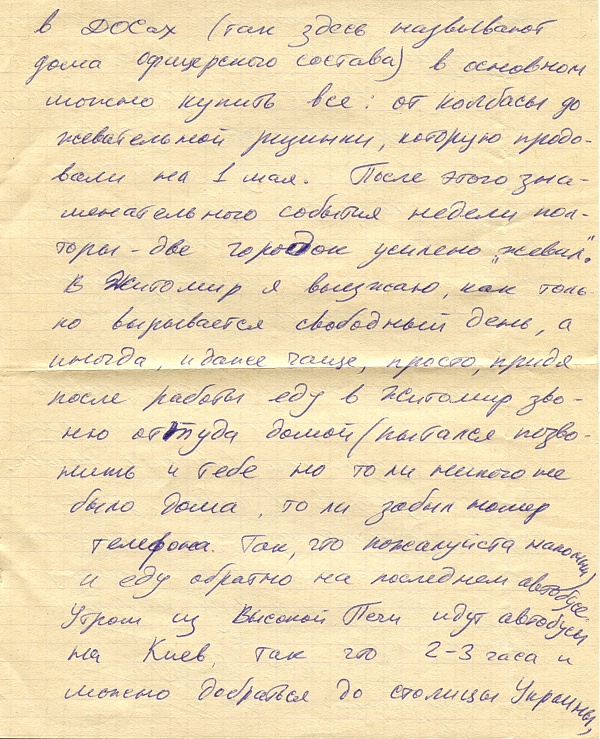 в ДОСах (так здесь называют
дома офицерского состава) в основном
можно купить все: от колбасы до
жевательной резинки, которую продо-
вали на 1 мая. После этого зна-
менательного события недели пол-
торы - две городок усилено „жевал".
В Житомир я выезжаю, как толь-
ко вырывается свободный день, а
иногда, и даже чаще, просто, придя
после работы еду в Житомир зво-
ню оттуда домой (пытался позво-
нить и тебе но то ли никого не
было дома, то ли забыл номер
телефона. Так, что пожалуйста напомни)
и еду обратно на последнем автобусе.
Утром из Высокой Печи идут автобусы
на Киев, так что 2-3 часа и
можно добраться до столицы Украины,